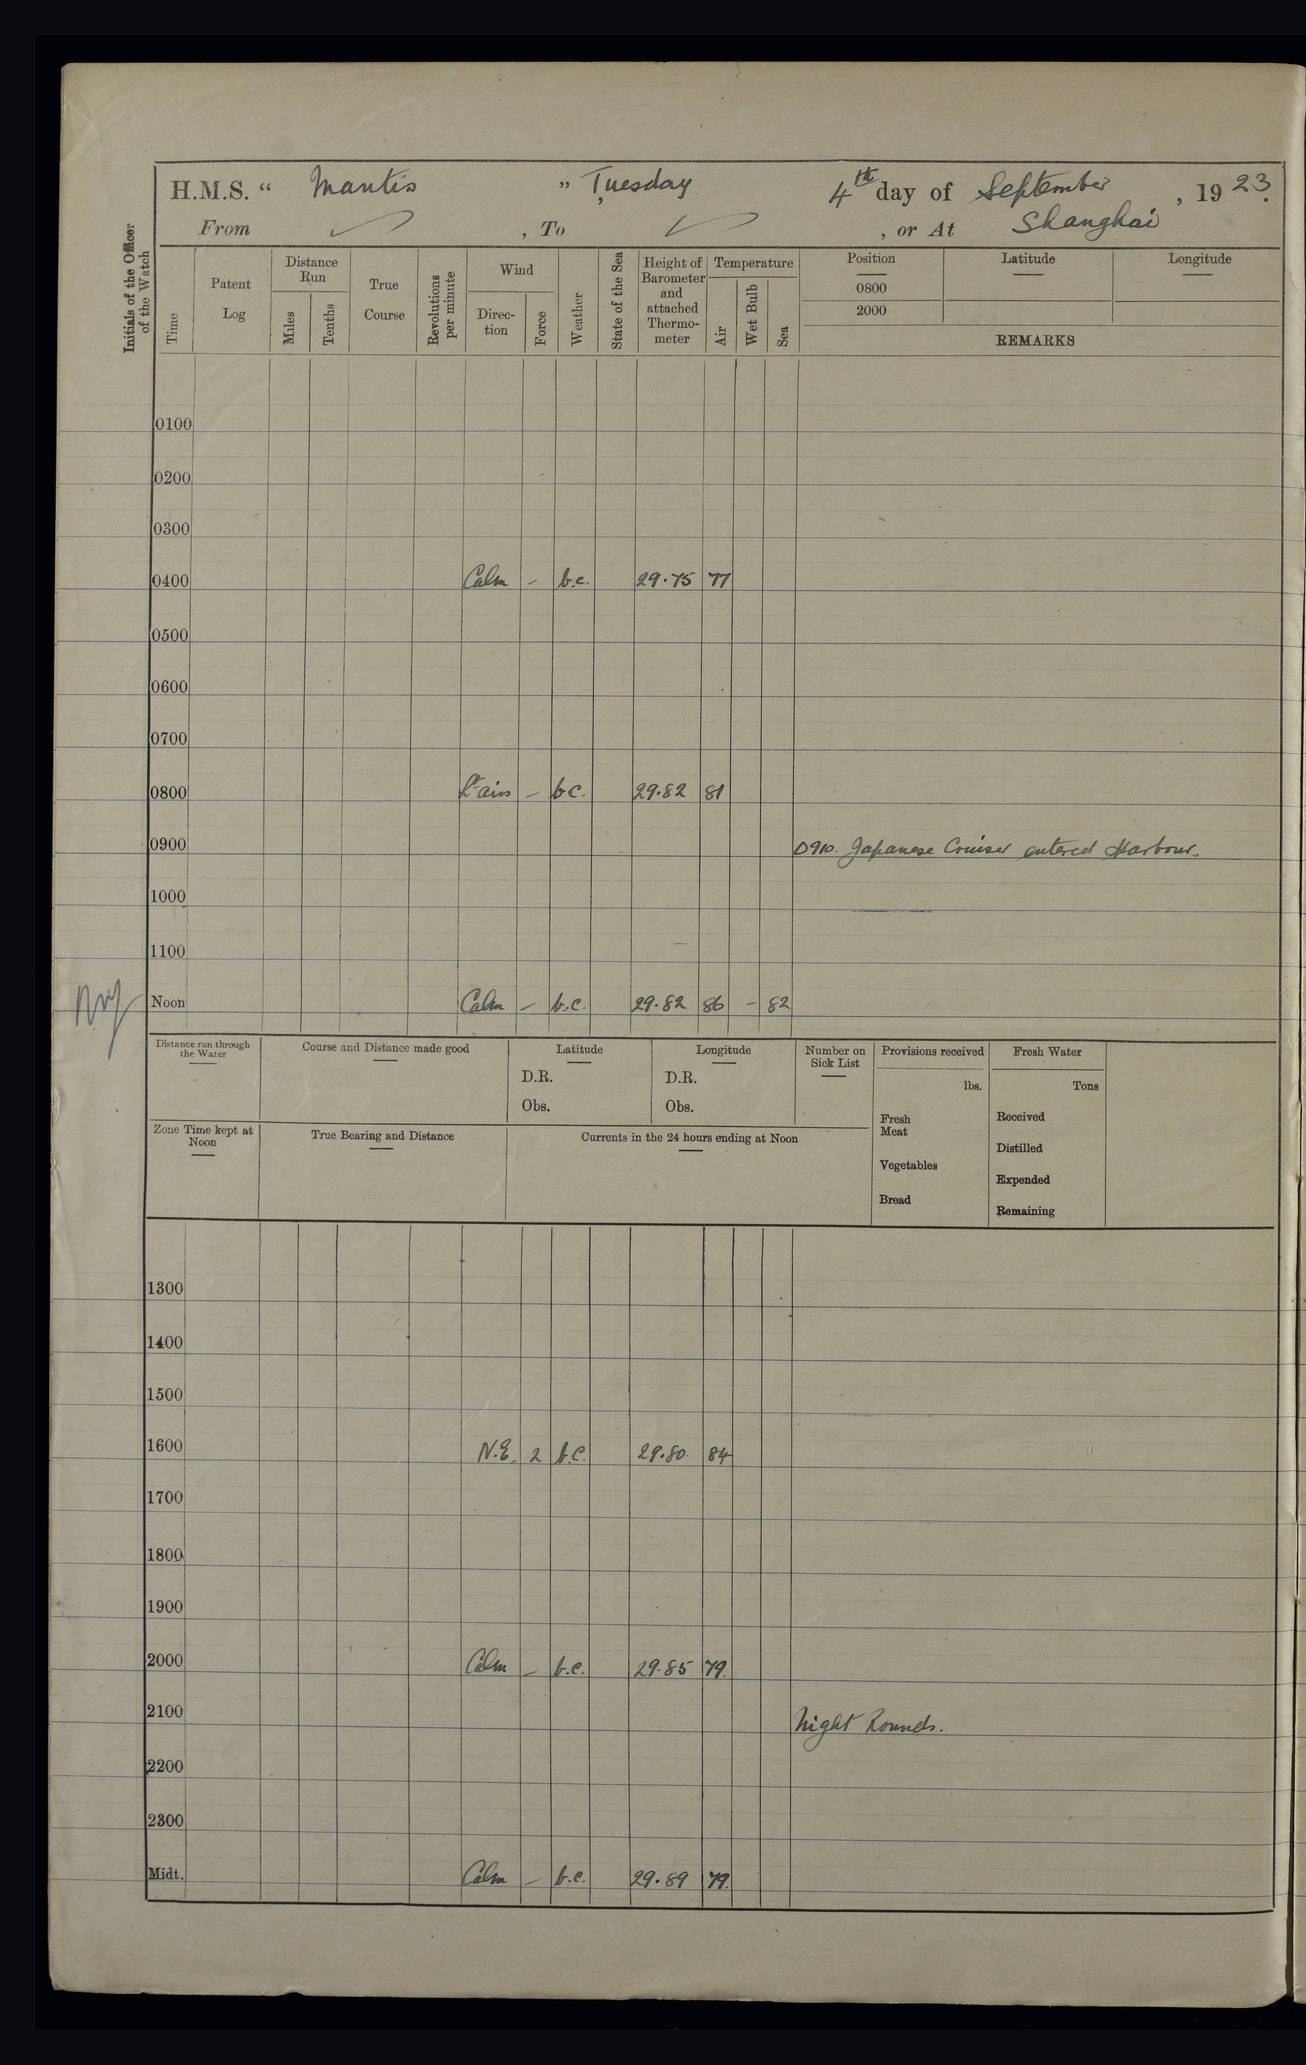 H.M.S. “ Mantis ” Tuesday 4th day of September , 19 23.
From , To , or At Shanghai
Initials of the Officer of the Watch
Time
Patent Log
Distance Run
Miles
Tenths
True Course
Revolutions per minute
Wind
Direc-tion
Force
Weather
State of the Sea
Height of Barometer and attached Thermo-meter
Temperature
Air
Wet Bulb
Sea
Position
0800
2000
Latitude
Longitude
REMARKS
0100
0200
0300
0400 Calm – b.c. 29.75 77
0500
0600
0700
0800 Lt airs – b.c. 29.82 81
0900 0910. Japanese Cruiser entered Harbour.
1000
1100
Noon Calm – b.c. 29.82 86 – 82
Distance run through the Water
Course and Distance made good
Latitude
D.R.
Obs.
Longitude
D.R.
Obs.
Number on Sick List
Provisions received
lbs.
Fresh Meat
Vegetables
Bread
Fresh Water
Tons
Received
Distilled
Expended
Remaining
Zone Time kept at Noon
True Bearing and Distance
Currents in the 24 hours ending at Noon
1300
1400
1500
1600 N.E. 2 b.c. 29.80. 84
1700
1800
1900
2000 Calm – b.c. 29.85 79.
2100 Night Rounds.
2200
2300
Midt. Calm – b.c. 29.89 79.